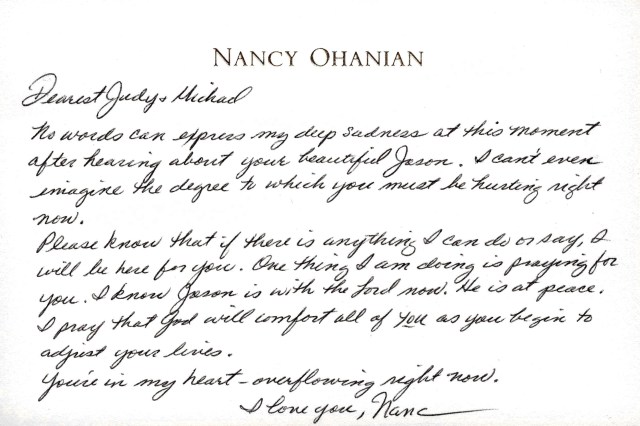 NANCY OHANIAN
Dearest Judy & Michael
No words can express my deep sadness at this moment
after hearing about your beautiful Jason. I can't even
imagine the degree to which you must be hurting right
now.
Please know that if there is anything I can do or say, I
will be here for you. One thing I am doing is praying for
you. I know Jason is with the Lord now. He is at peace.
I pray that God will comfort all of you as you begin to
adjust your lives.
You're in my heart - overflowing right now.
I love you, Nanc